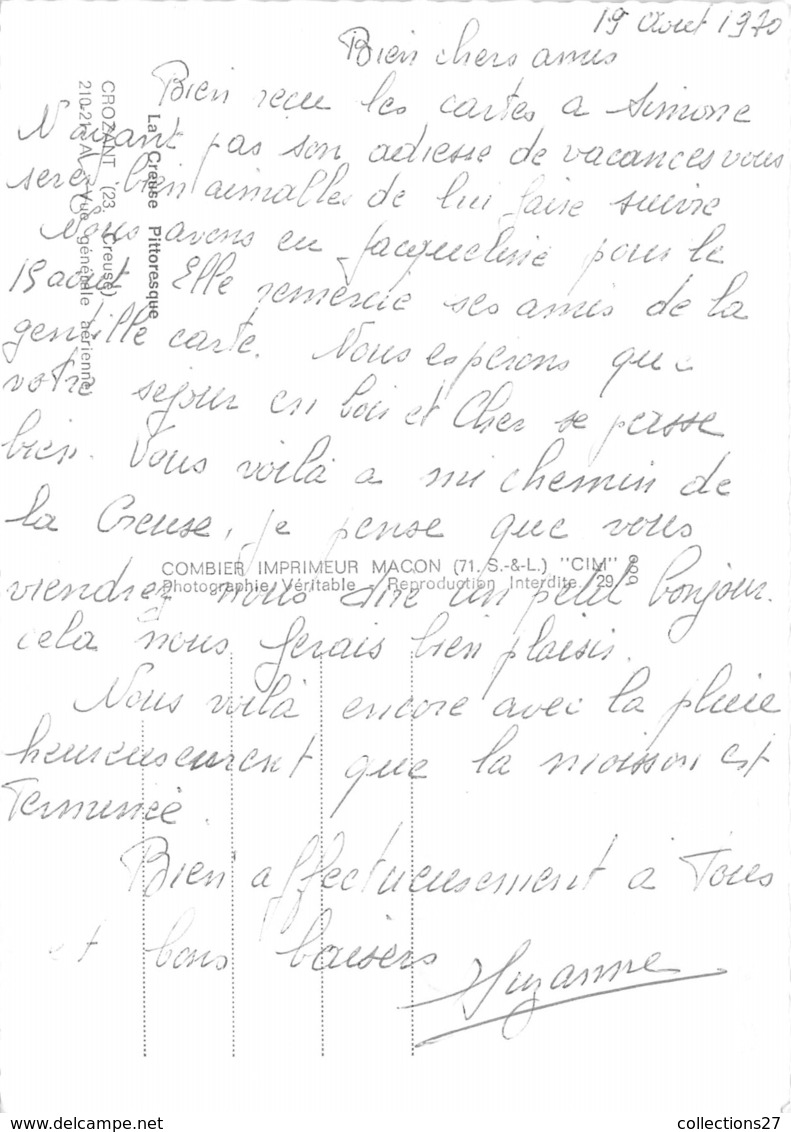 19 Aout 1970
Bien chers amis
Bien reçu les cartes a Simone
N'ayant pas son adresse de vacances vous
serez bien aimables de lui faire suivre
Nous avons eu Jacqueline pour le
15 aout Elle remercie ses amis de la
gentille carte. Nous esperons que
votre sejour en loir et Cher se passe
bien. Vous voilà a mi chemin de
la Creuse, je pense que vous
viendrez nous dire un petit bonjour.
cela nous ferais bien plaisir.
Nous voilà encore avec la pluie
heureusement que la moisson est
Terminée.
Bien affectueusement à Tous
et bons baisers
Suzanne
La Creuse Pittoresque
CROZANT (23. Creuse)
Vue générale aérienne
COMBIER IMPRIMEUR MACON (71. S.-&-L.) "CIM"
Photographie Véritable - Reproduction Interdite. 29
collections27